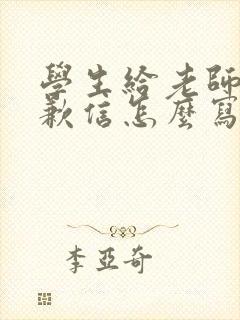 學生給老師
歉信怎麼寫
李亞奇